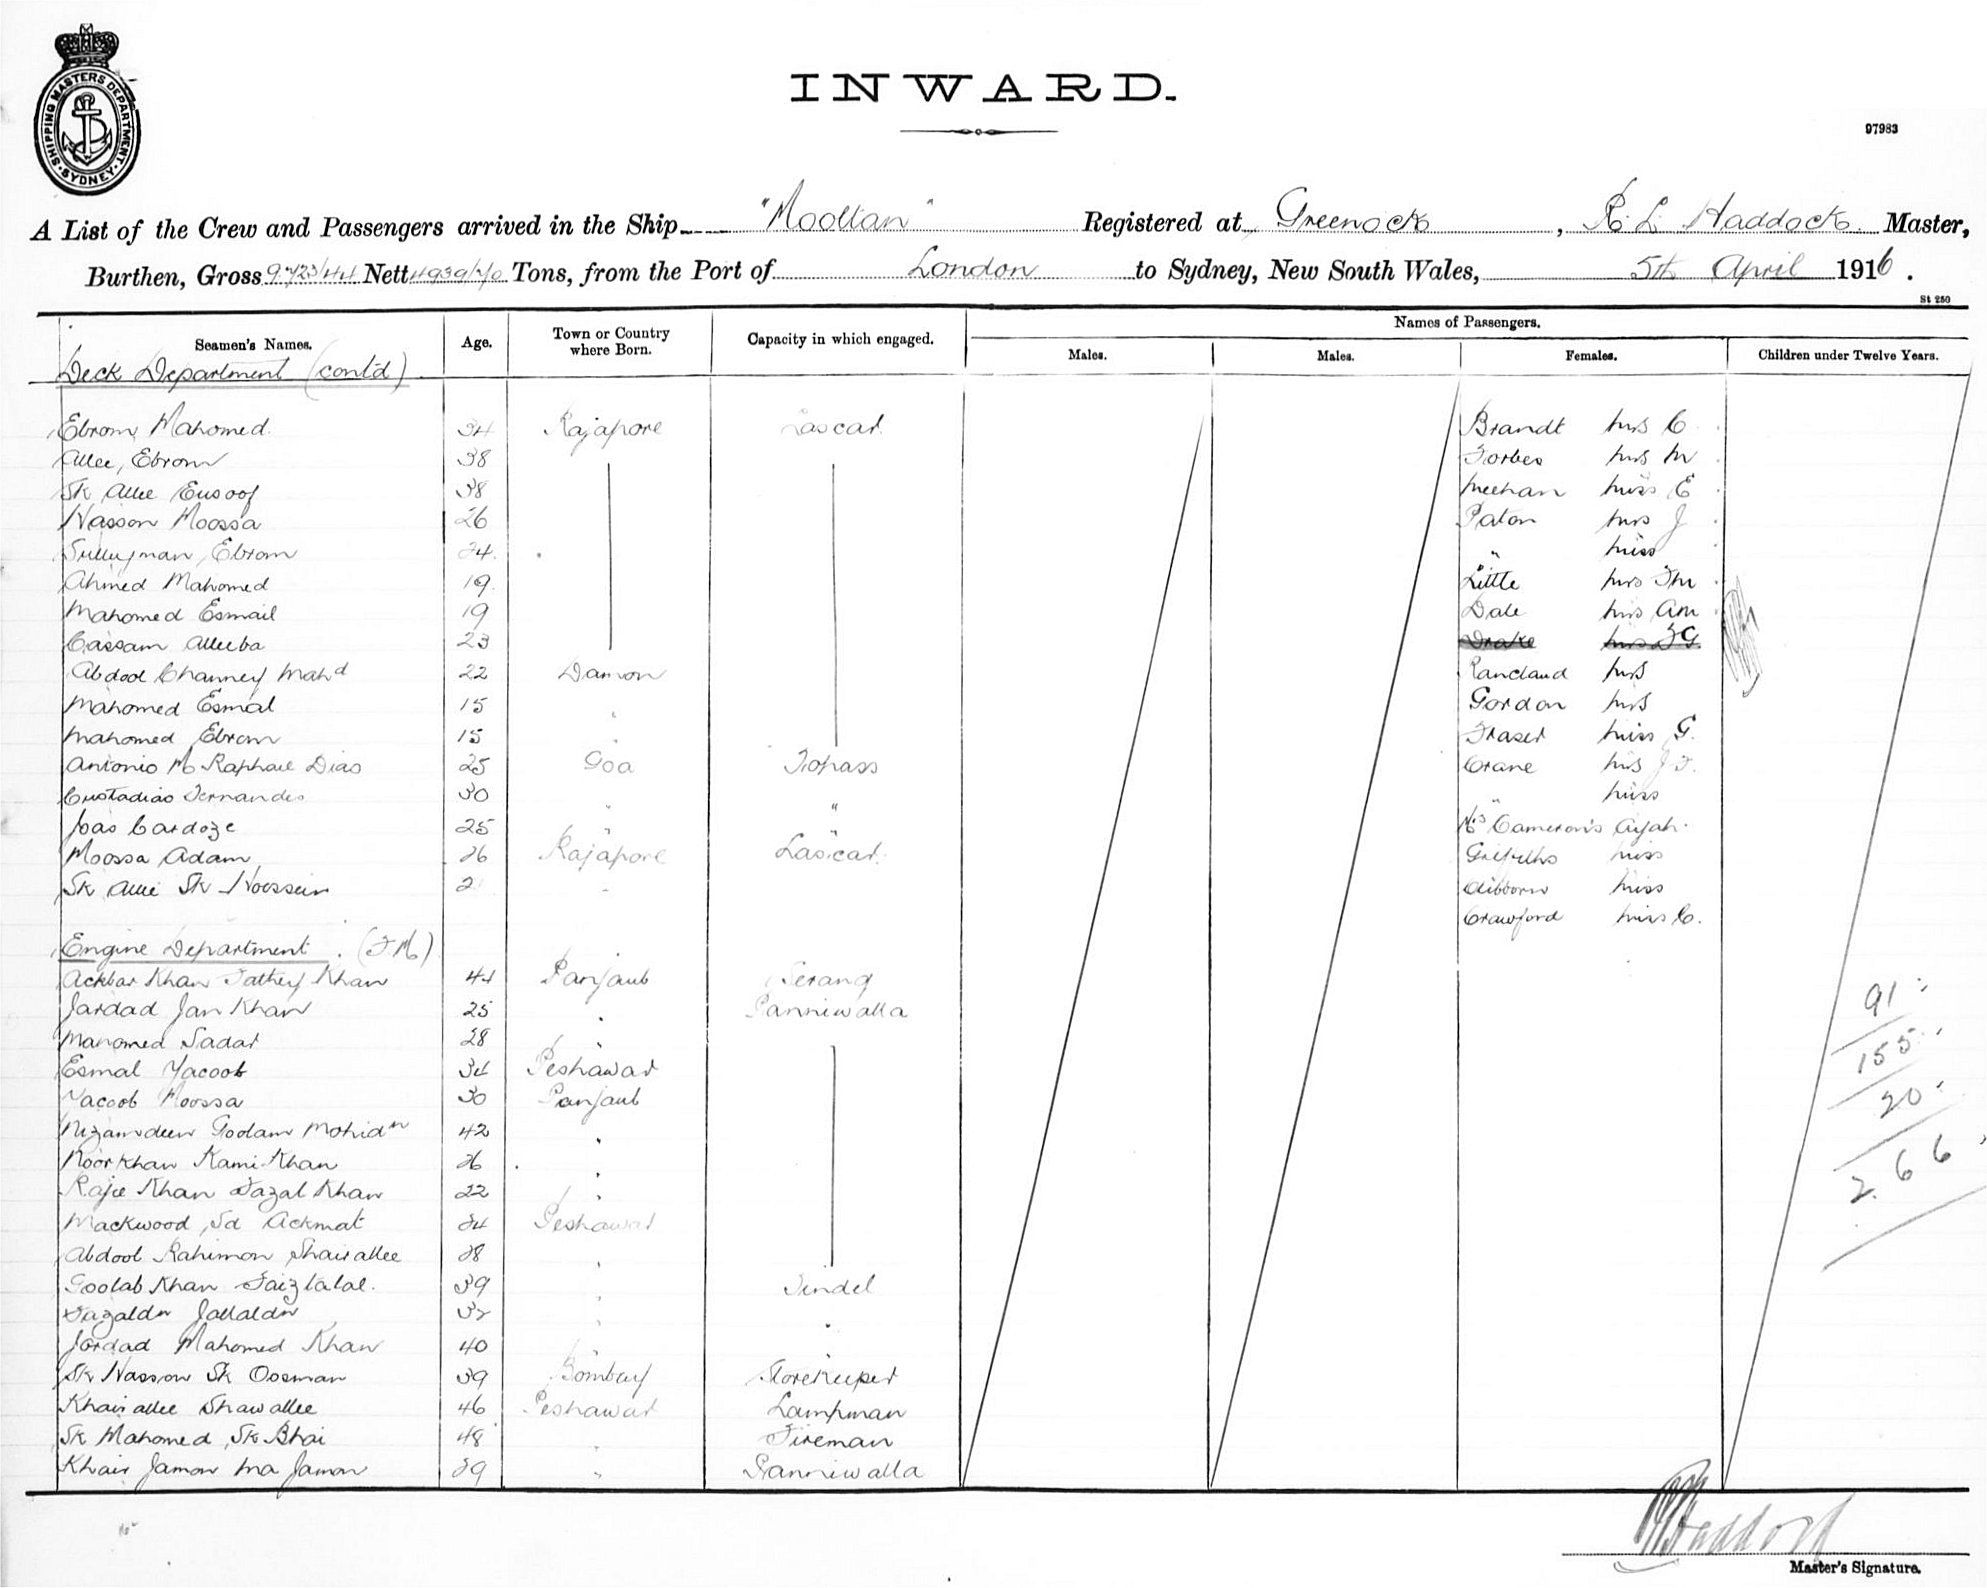 SHIPPING MASTERS DEPARTMENT · SYDNEY ·
INWARD.
97983
A List of the Crew and Passengers arrived in the Ship "Mooltan" Registered at Greenock, R. L. Haddock Master,
Burthen, Gross 9723/44 Nett 4939/70 Tons, from the Port of London to Sydney, New South Wales, 5th April 1916.
St 250
Seamen's Names. Age. Town or Country where Born. Capacity in which engaged. Names of Passengers.
Males. Males. Females. Children under Twelve Years.
Deck Department (contd)
Ebrom Mahomed 34 Rajapore Lascar Brandt Mrs C
Allee, Ebrom 38 Forbes Mrs M
Sk Allee Eusoof 38 Meehan Miss E
Hasson Moossa 26 Paton Mrs J
Sulleyman, Ebrom 24 " Miss
Ahmed Mahomed 19 Little Mrs Th
Mahomed Esmail 19 Dale Mrs AM
Cassam Alleeba 23 Drake Mrs F G
Abdool Channey Mahd 22 Damon Mrs
Mahomed Esmal 15 " Gordon Mrs
Mahomed Ebrom 15 " Fraser Miss G.
Antonio M Raphael Dias 25 Goa Topass Crane Mrs J F.
Custadiao Fernandes 30 " " " Miss
Joao Cardoze 25 " " Mrs Cameron's Ayah.
Moossa Adam 26 Rajapore Lascar Griffiths Miss
Sk Allie Sk Hoossein " Miss
Crawford Miss C.
Engine Department. (F.M.)
Ackbar Khan Fathey Khan 44 Panjaub Serang
Jardad Jan Khan 25 " Panniwalla
Mahomed Sadar 28 "
Esmal Yacoob 34 Peshawar
Yacoob Moossa 30 Panjaub
Nizamdeen Goolam Mohidn 42 "
Noorkhan Kami Khan 26 "
Rajee Khan Fazal Khan 22 "
Mackwood, Sd Ackmat 24 Peshawar
Abdool Rahimon Shairallee 28 "
Goolab Khan Faiztalal. 39 " Tindel
Fazaldn Jallaldn 32 " "
Jordad Mahomed Khan 40 " "
Sk Hasson Sk Oosman 39 Bombay Storekeeper
Khairallee Shawallee 46 Peshawar Lampman
Sk Mahomed, Sk Bhai 48 " Fireman
Khair Jamon Ma Jamon 29 " Panniwalla
91
155
20
266
R L Haddock
Master's Signature.